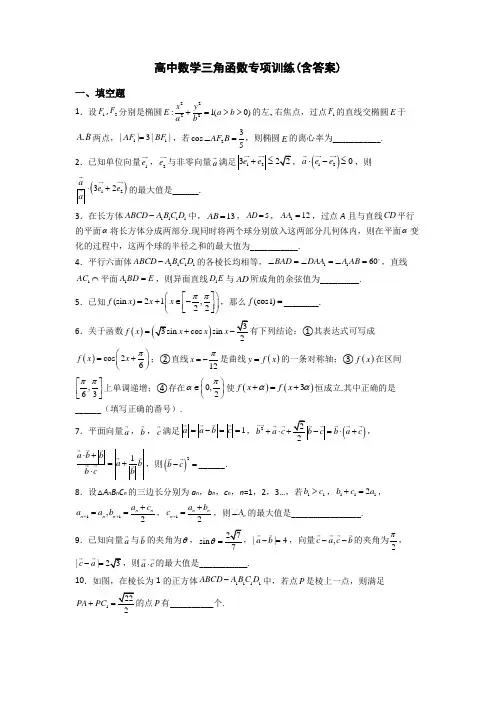 高中数学三角函数专项训练(含答案)
一、填空题
1．设 F₁,F₂ 分别是椭圆 E: x²/a² + y²/b² = 1(a > b > 0) 的左､右焦点，过点 F₁ 的直线交椭圆 E 于
A,B 两点，| AF₁ |= 3 | BF₁ |，若 cos∠AF₂B = 3/5，则椭圆 E 的离心率为___________.
2．已知单位向量 e₁，e₂ 与非零向量 a 满足 |3e₁ + e₂| ≤ 2√2，a·(e₁ − e₂) ≤ 0，则
a/|a| ·(3e₁ + 2e₂) 的最大值是______.
3．在长方体 ABCD − A₁B₁C₁D₁ 中，AB = 13，AD = 5，AA₁ = 12，过点 A 且与直线 CD 平行
的平面 α 将长方体分成两部分.现同时将两个球分别放入这两部分几何体内，则在平面 α 变
化的过程中，这两个球的半径之和的最大值为___________.
4．平行六面体 ABCD − A₁B₁C₁D₁ 的各棱长均相等，∠BAD = ∠DAA₁ = ∠A₁AB = 60°，直线
AC₁ ∩ 平面 A₁BD = E，则异面直线 D₁E 与 AD 所成角的余弦值为_________.
5．已知 f(sin x) = 2x + 1 (x ∈ [−π/2, π/2])，那么 f(cos1) = ________.
6．关于函数 f(x) = (√3 sin x + cos x) sin x − 有下列结论：①其表达式可写成
f(x) = cos(2x + π/6)；②直线 x = −π/12 是曲线 y = f(x) 的一条对称轴；③ f(x) 在区间
[π/6, π/3] 上单调递增；④存在 α ∈ (0, π/2) 使 f(x + α) = f(x + 3α) 恒成立.其中正确的是
______（填写正确的番号）.
7．平面向量 a，b，c 满足 |a| = |a − b| = |c| = 1，
则 (b − c)² = ______.
8．设△AₙBₙCₙ 的三边长分别为 aₙ，bₙ，cₙ，n=1，2，3…，若 b₁ > c₁，b₁ + c₁ = 2a₁，
aₙ₊₁ = aₙ, bₙ₊₁ = (aₙ + cₙ)/2，cₙ₊₁ = (aₙ + bₙ)/2，则∠Aₙ 的最大值是________________.
9．已知向量 a 与 b 的夹角为 θ，sin θ = 2√7/7，| a − b |= 4，向量 c − a, c − b 的夹角为 π/2，
| c − a |= 2√3，则 a·c 的最大值是___________.
10．如图，在棱长为 1 的正方体 ABCD − A₁B₁C₁D₁ 中，若点 P 是棱上一点，则满足
PA + PC₁ = √22/2 的点 P 有__________个.